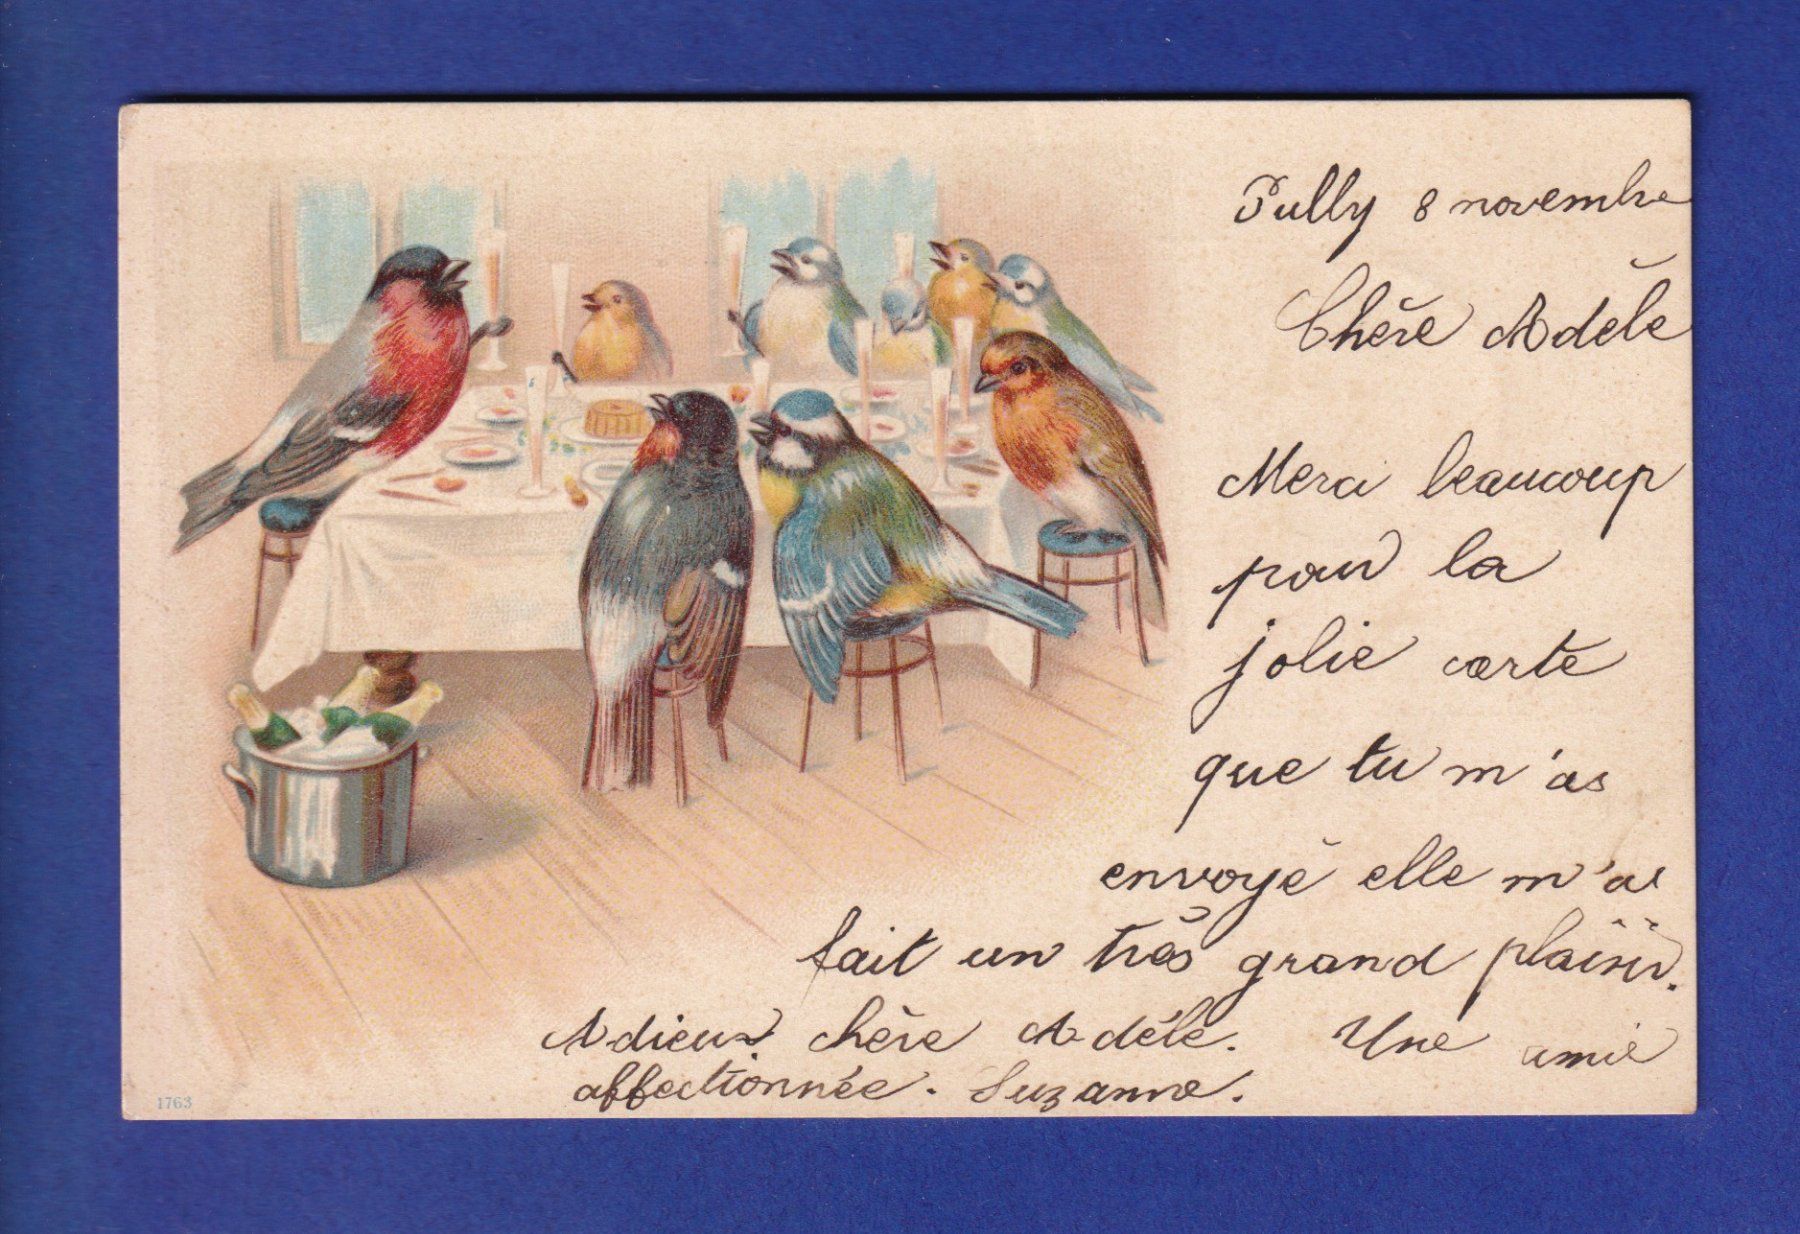 Pully 8 novembre
Chère Adèle
Merci beaucoup
pour la
jolie carte
que tu m'as
envoyé elle m'as
fait un très grand plaisir.
Adieux chère Adèle. Une amie
affectionnée. Suzanne.
1763